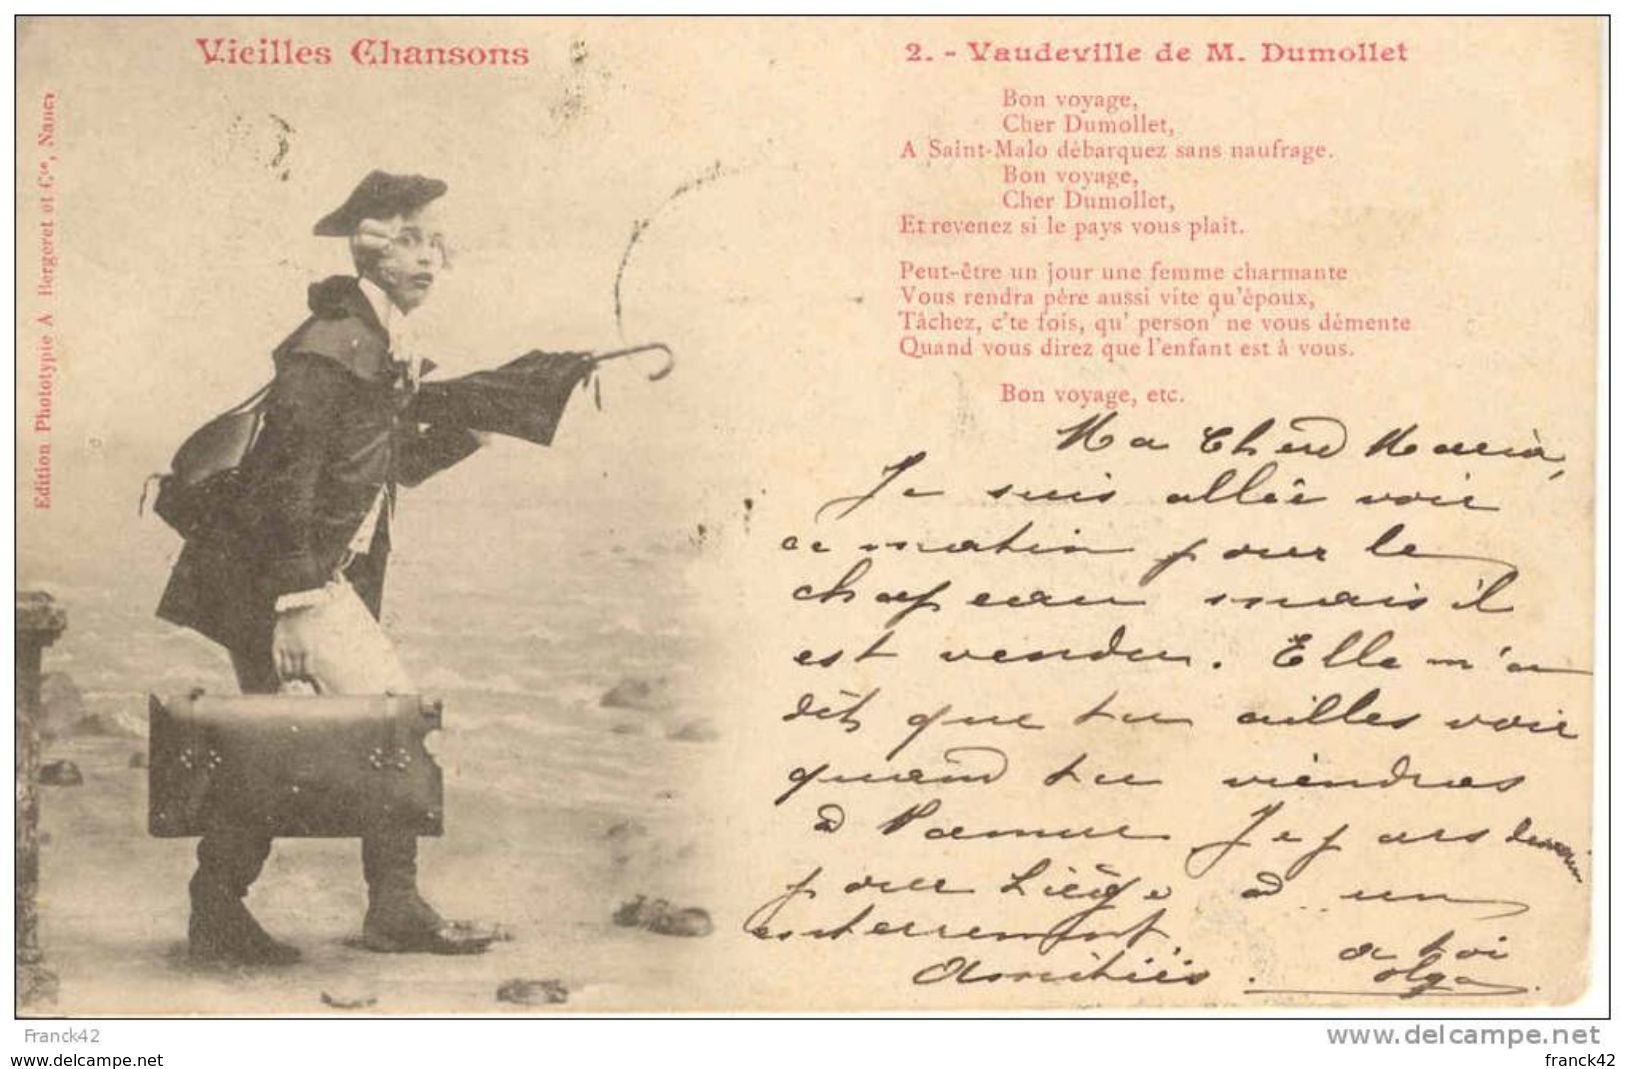 Vieilles Chansons
2. - Vaudeville de M. Dumollet
Bon voyage,
Cher Dumollet,
A Saint-Malo débarquez sans naufrage.
Bon voyage,
Cher Dumollet,
Et revenez si le pays vous plait.
Peut-être un jour une femme charmante
Vous rendra père aussi vite qu'époux,
Tâchez, c'te fois, qu' person' ne vous démente
Quand vous direz que l'enfant est à vous.
Bon voyage, etc.
Edition Phototypie A Bergeret et Cie, Nancy
Ma Cher Maria,
Je suis allée voir
ce matin pour le
chapeau mais il
est vendu. Elle m'a
dit que tu ailles voir
quand tu viendras
à Namur Je pars demain
pour Liège à un
enterrement.
Amitiés. a toi
Olga
Franck42
www.delcampe.net
www.delcampe.net
franck42